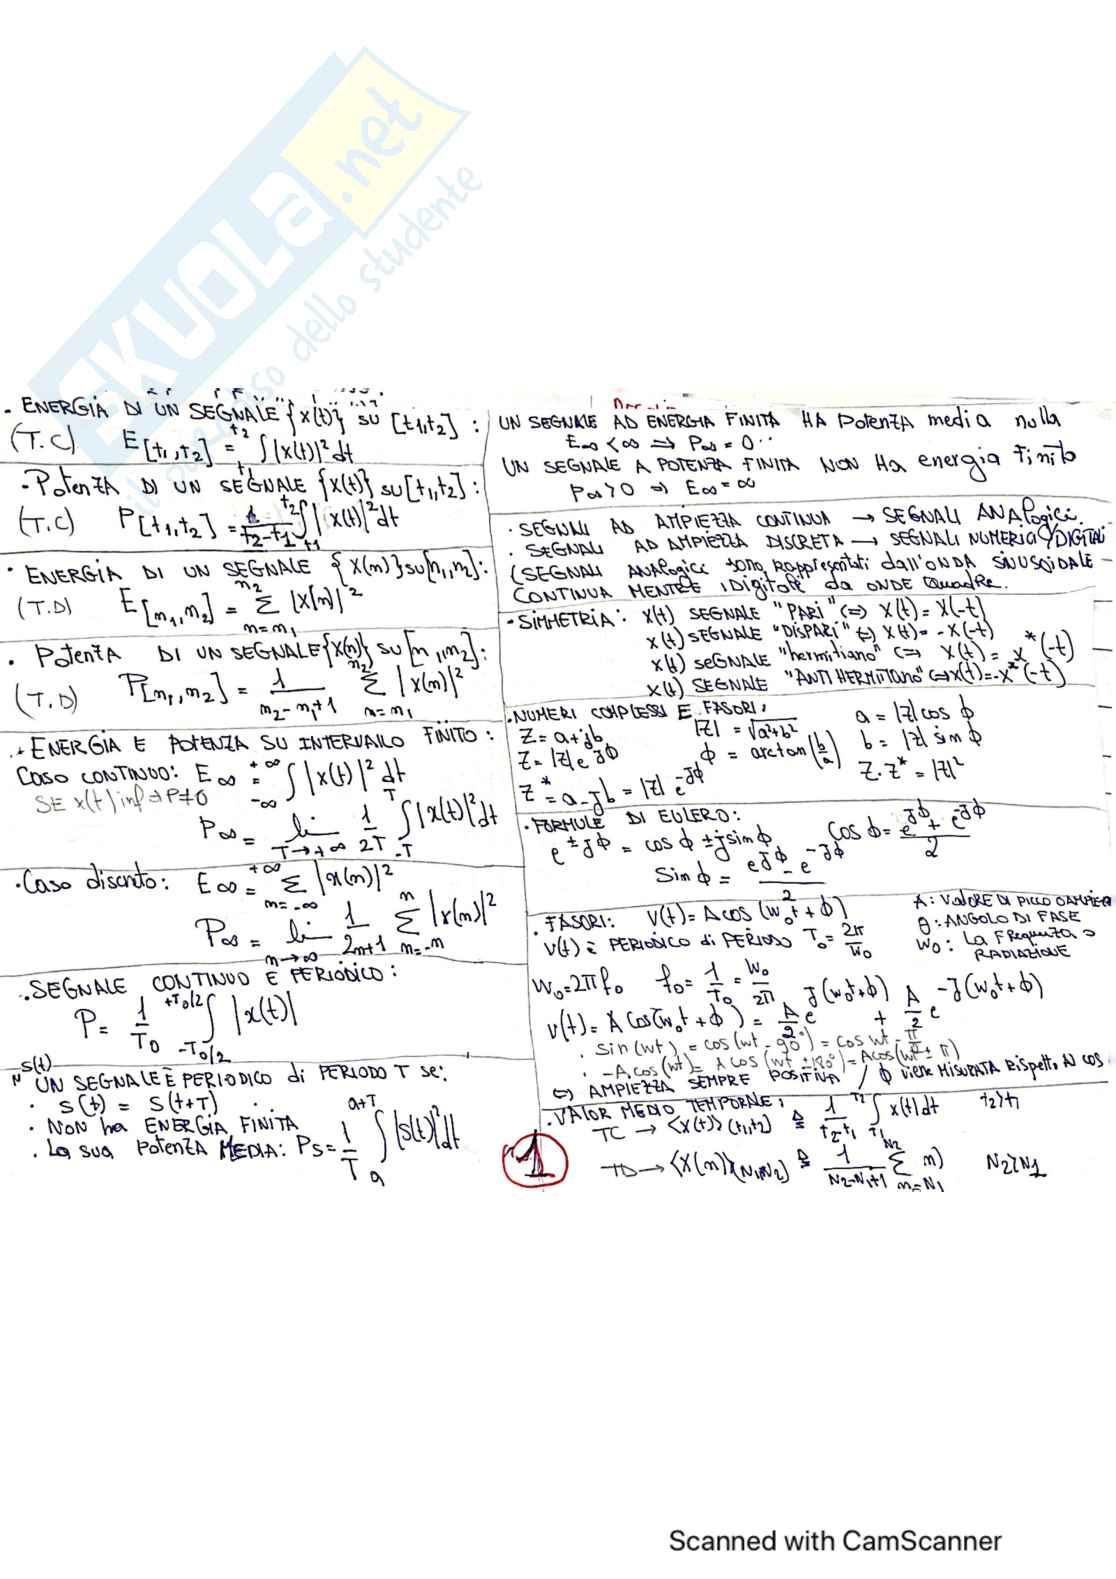 SKUOLA.net
dello studente
. ENERGIA DI UN SEGNALE {x(t)} SU [t1,t2] :
(T.C) E[t1,t2] = ∫t1^t2 |x(t)|² dt
- Potenza DI UN SEGNALE {x(t)} SU [t1,t2] :
(T.C) P[t1,t2] = 1/(t2-t1) ∫t1^t2 |x(t)|² dt
· ENERGIA DI UN SEGNALE {x(n)} SU [n1,n2] :
(T.D) E[n1,n2] = Σ n=n1^n2 |x(n)|²
. Potenza DI UN SEGNALE {x(n)} SU [n1,n2] :
(T.D) P[n1,n2] = 1/(n2-n1+1) Σ n=n1^n2 |x(n)|²
. ENERGIA E POTENZA SU INTERVALLO FINITO :
Caso CONTINUO: E∞ = ∫-∞^+∞ |x(t)|² dt
SE x(t) inf ⇒ P≠0
P∞ = lim T→+∞ 1/2T ∫-T^T |x(t)|² dt
· Caso discreto: E∞ = Σ n=-∞^+∞ |x(n)|²
P∞ = lim n→∞ 1/(2n+1) Σ n=-n^n |x(n)|²
. SEGNALE CONTINUO E PERIODICO :
P = 1/T0 ∫-T0/2^+T0/2 |x(t)|
s(t)
UN SEGNALE È PERIODICO di PERIODO T se:
· s(t) = s(t+T)
· NON ha ENERGIA FINITA
. La sua Potenza MEDIA: Ps = 1/T ∫a^a+T |s(t)|² dt
UN SEGNALE AD ENERGIA FINITA HA Potenza media nulla
E∞ < ∞ ⇒ P∞ = 0
UN SEGNALE A POTENZA FINITA NON HA energia finita
P∞ > 0 ⇒ E∞ = ∞
· SEGNALI AD AMPIEZZA CONTINUA → SEGNALI ANALogici.
. SEGNALI AD AMPIEZZA DISCRETA → SEGNALI NUMERICI/DIGITALI
(SEGNALI ANALogici sono rappresentati dall'ONDA SINUSOIDALE -
CONTINUA MENTRE i Digitale da ONDE Quadre.
· SIMMETRIA: x(t) SEGNALE "PARI" ⇔ x(t) = x(-t)
x(t) SEGNALE "DISPARI" ⇔ x(t) = -x(-t)
x(t) SEGNALE "hermitiano" ⇔ x(t) = x*(-t)
x(t) SEGNALE "ANTIHERMITIANO" ⇔ x(t) = -x*(-t)
. NUMERI COMPLESSI E FASORI:
z = a+jb |z| = √a²+b² a = |z| cos ϕ
z = |z| e^jϕ ϕ = arctan(b/a) b = |z| sin ϕ
z* = a-jb = |z| e^-jϕ z·z* = |z|²
· FORMULE DI EULERO:
e^±jϕ = cos ϕ ± j sin ϕ cos ϕ = (e^jϕ + e^-jϕ)/2
Sin ϕ = (e^jϕ - e^-jϕ)/2
. FASORI: V(t) = A cos (w0t + ϕ) A: Valore DI PICCO O AMPIEZZA
V(t) è PERIODICO di PERIODO T0 = 2π/w0 θ: ANGOLO DI FASE
w0: La FREQUENZA o RADIAZIONE
w0 = 2πf0 f0 = 1/T0 = w0/2π
V(t) = A cos(w0t + ϕ) = A/2 e^j(w0t+ϕ) + A/2 e^-j(w0t+ϕ)
. sin(wt) = cos(wt - 90°) = cos wt - π/2
. -A cos(wt) = A cos(wt ± 180°) = A cos(wt ± π)
⇔ AMPIEZZA SEMPRE POSITIVA / ϕ viene MISURATA Rispetto Al COS
. VALOR MEDIO TEMPORALE:
TC → <x(t)>(t1,t2) ≜ 1/(t2-t1) ∫T1^T2 x(t) dt t2>t1
TD → <x(n)>(N1,N2) ≜ 1/(N2-N1+1) Σ n=N1^N2 n) N2>N1
1
Scanned with CamScanner